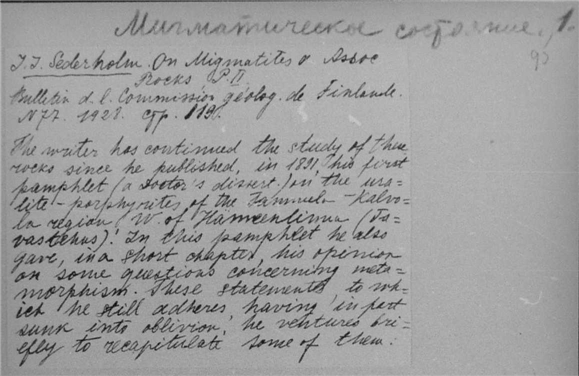 Мигматическое состояние. 1.
93
J.J. Sederholm. On Migmatites & Assoc
Rocks P. II.
Bulletin d. l. Commission géolog. de Finlande.
N 77. 1927. стр.
The writer has continued the study of these
rocks since he published, in 1891, his first
pamphlet (a Doctor's dissert.) on the ura=
lite-porphyrites of the Tammela-Kalvo=
la region (W. of Hämeenlinna (Ta=
vastehus). In this pamphlet he also
gave, in a short chapter, his opinion
on some questions concerning meta=
morphism. These statements to wh=
ich he still adheres, having in part
sunk into oblivion, he ventures bri=
efly to recapitulate some of them: